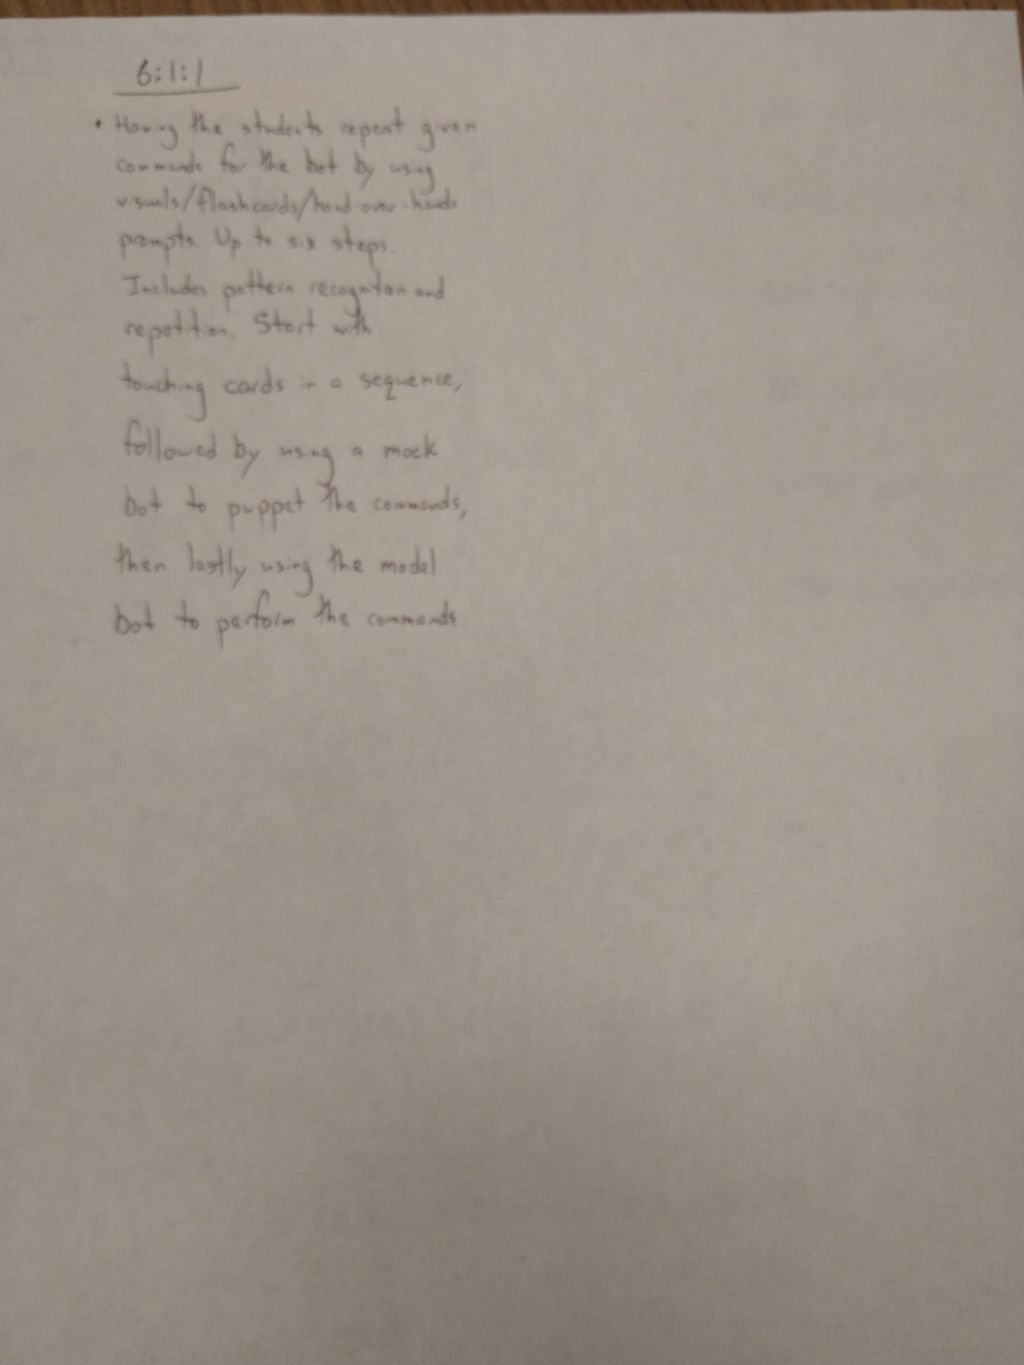 6:1:1
• Having the students repeat given
commands for the bot by using
visuals/flashcards/hand-over-hands
prompts. Up to six steps.
Includes pattern recognition and
repetition. Start with
touching cards in a sequence,
followed by using a mock
bot to puppet the commands,
then lastly using the model
bot to perform the commands